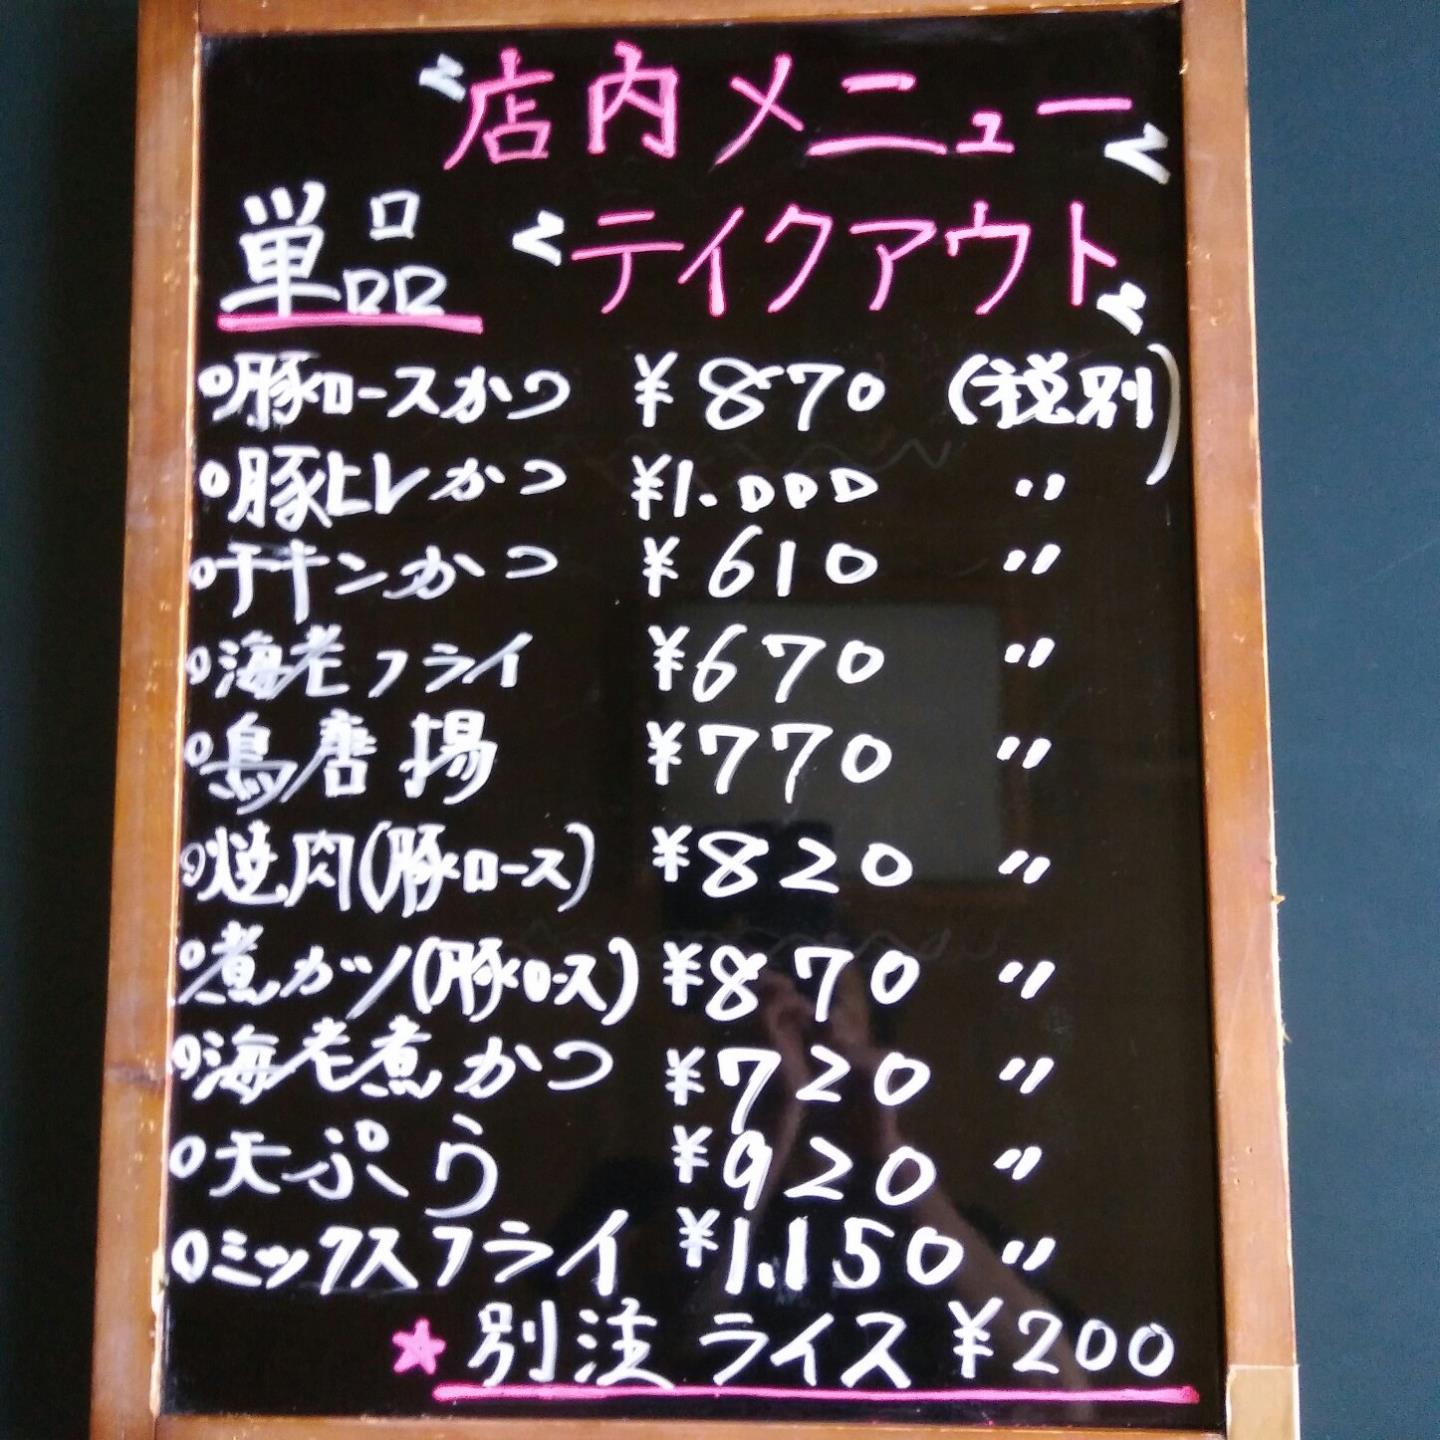 店内メニュー
単品 テイクアウト
豚ロースかつ ¥870 (税別)
豚ヒレかつ ¥1.000 〃
チキンかつ ¥610 〃
海老フライ ¥670 〃
鳥唐揚 ¥770 〃
焼肉(豚ロース) ¥820 〃
煮カツ(豚ロース) ¥870 〃
海老煮かつ ¥720 〃
天ぷら ¥920 〃
ミックスフライ ¥1.150 〃
★別注 ライス ¥200